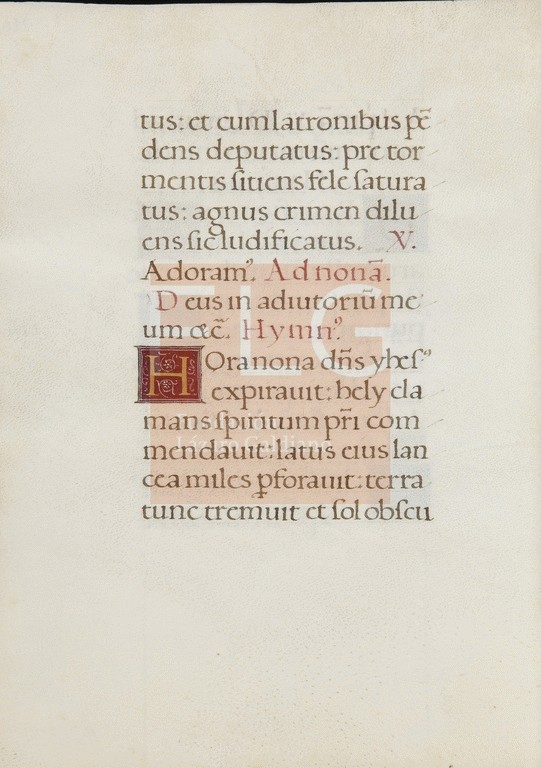 tus: et cum latronibus pē
dens deputatus: pre tor
mentis sitiens fele satura
tus: agnus crimen dilu
ens sic ludificatus. V.
Adoramꝰ. Ad nonā.
Deus in adiutoriū me
um ⁊c̄. Hymnꝰ.
Hora nona dn̄s yhesꝰ
expirauit: hely cla
mans spiritum pr̄i com
mendauit: latus eius lan
cea miles ꝑforauit: terra
tunc tremuit et sol obscu
FLG
Lázaro Galdiano